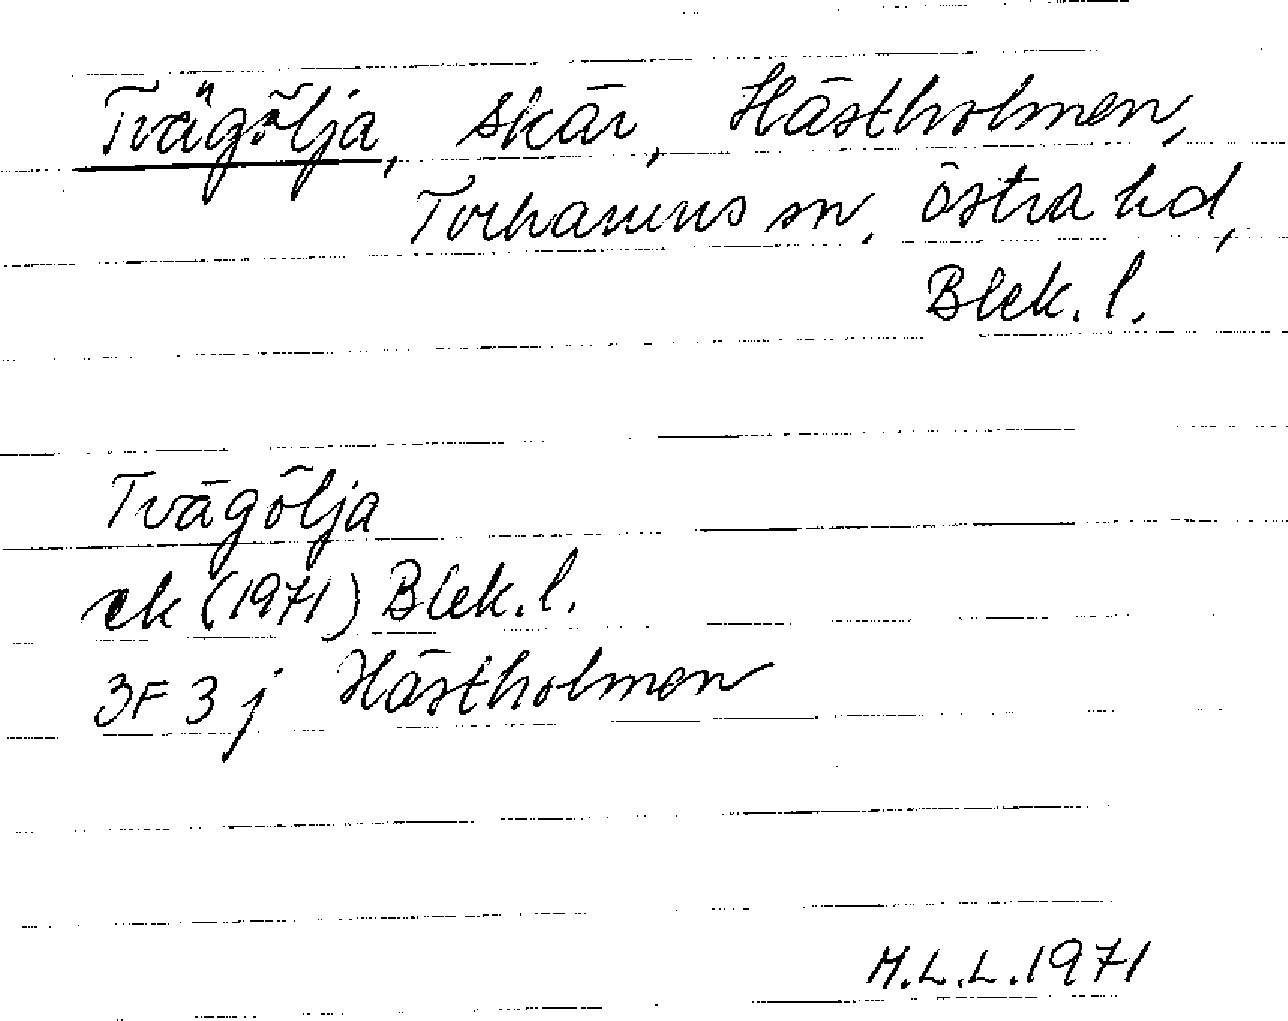 Tvägölja, skär, Hästholmen,
Torhamns sn, östra hd,
Blek. l.
Tvägölja
ek (1971) Blek. l.
3F 3 j Hästholmen
M.L.L. 1971